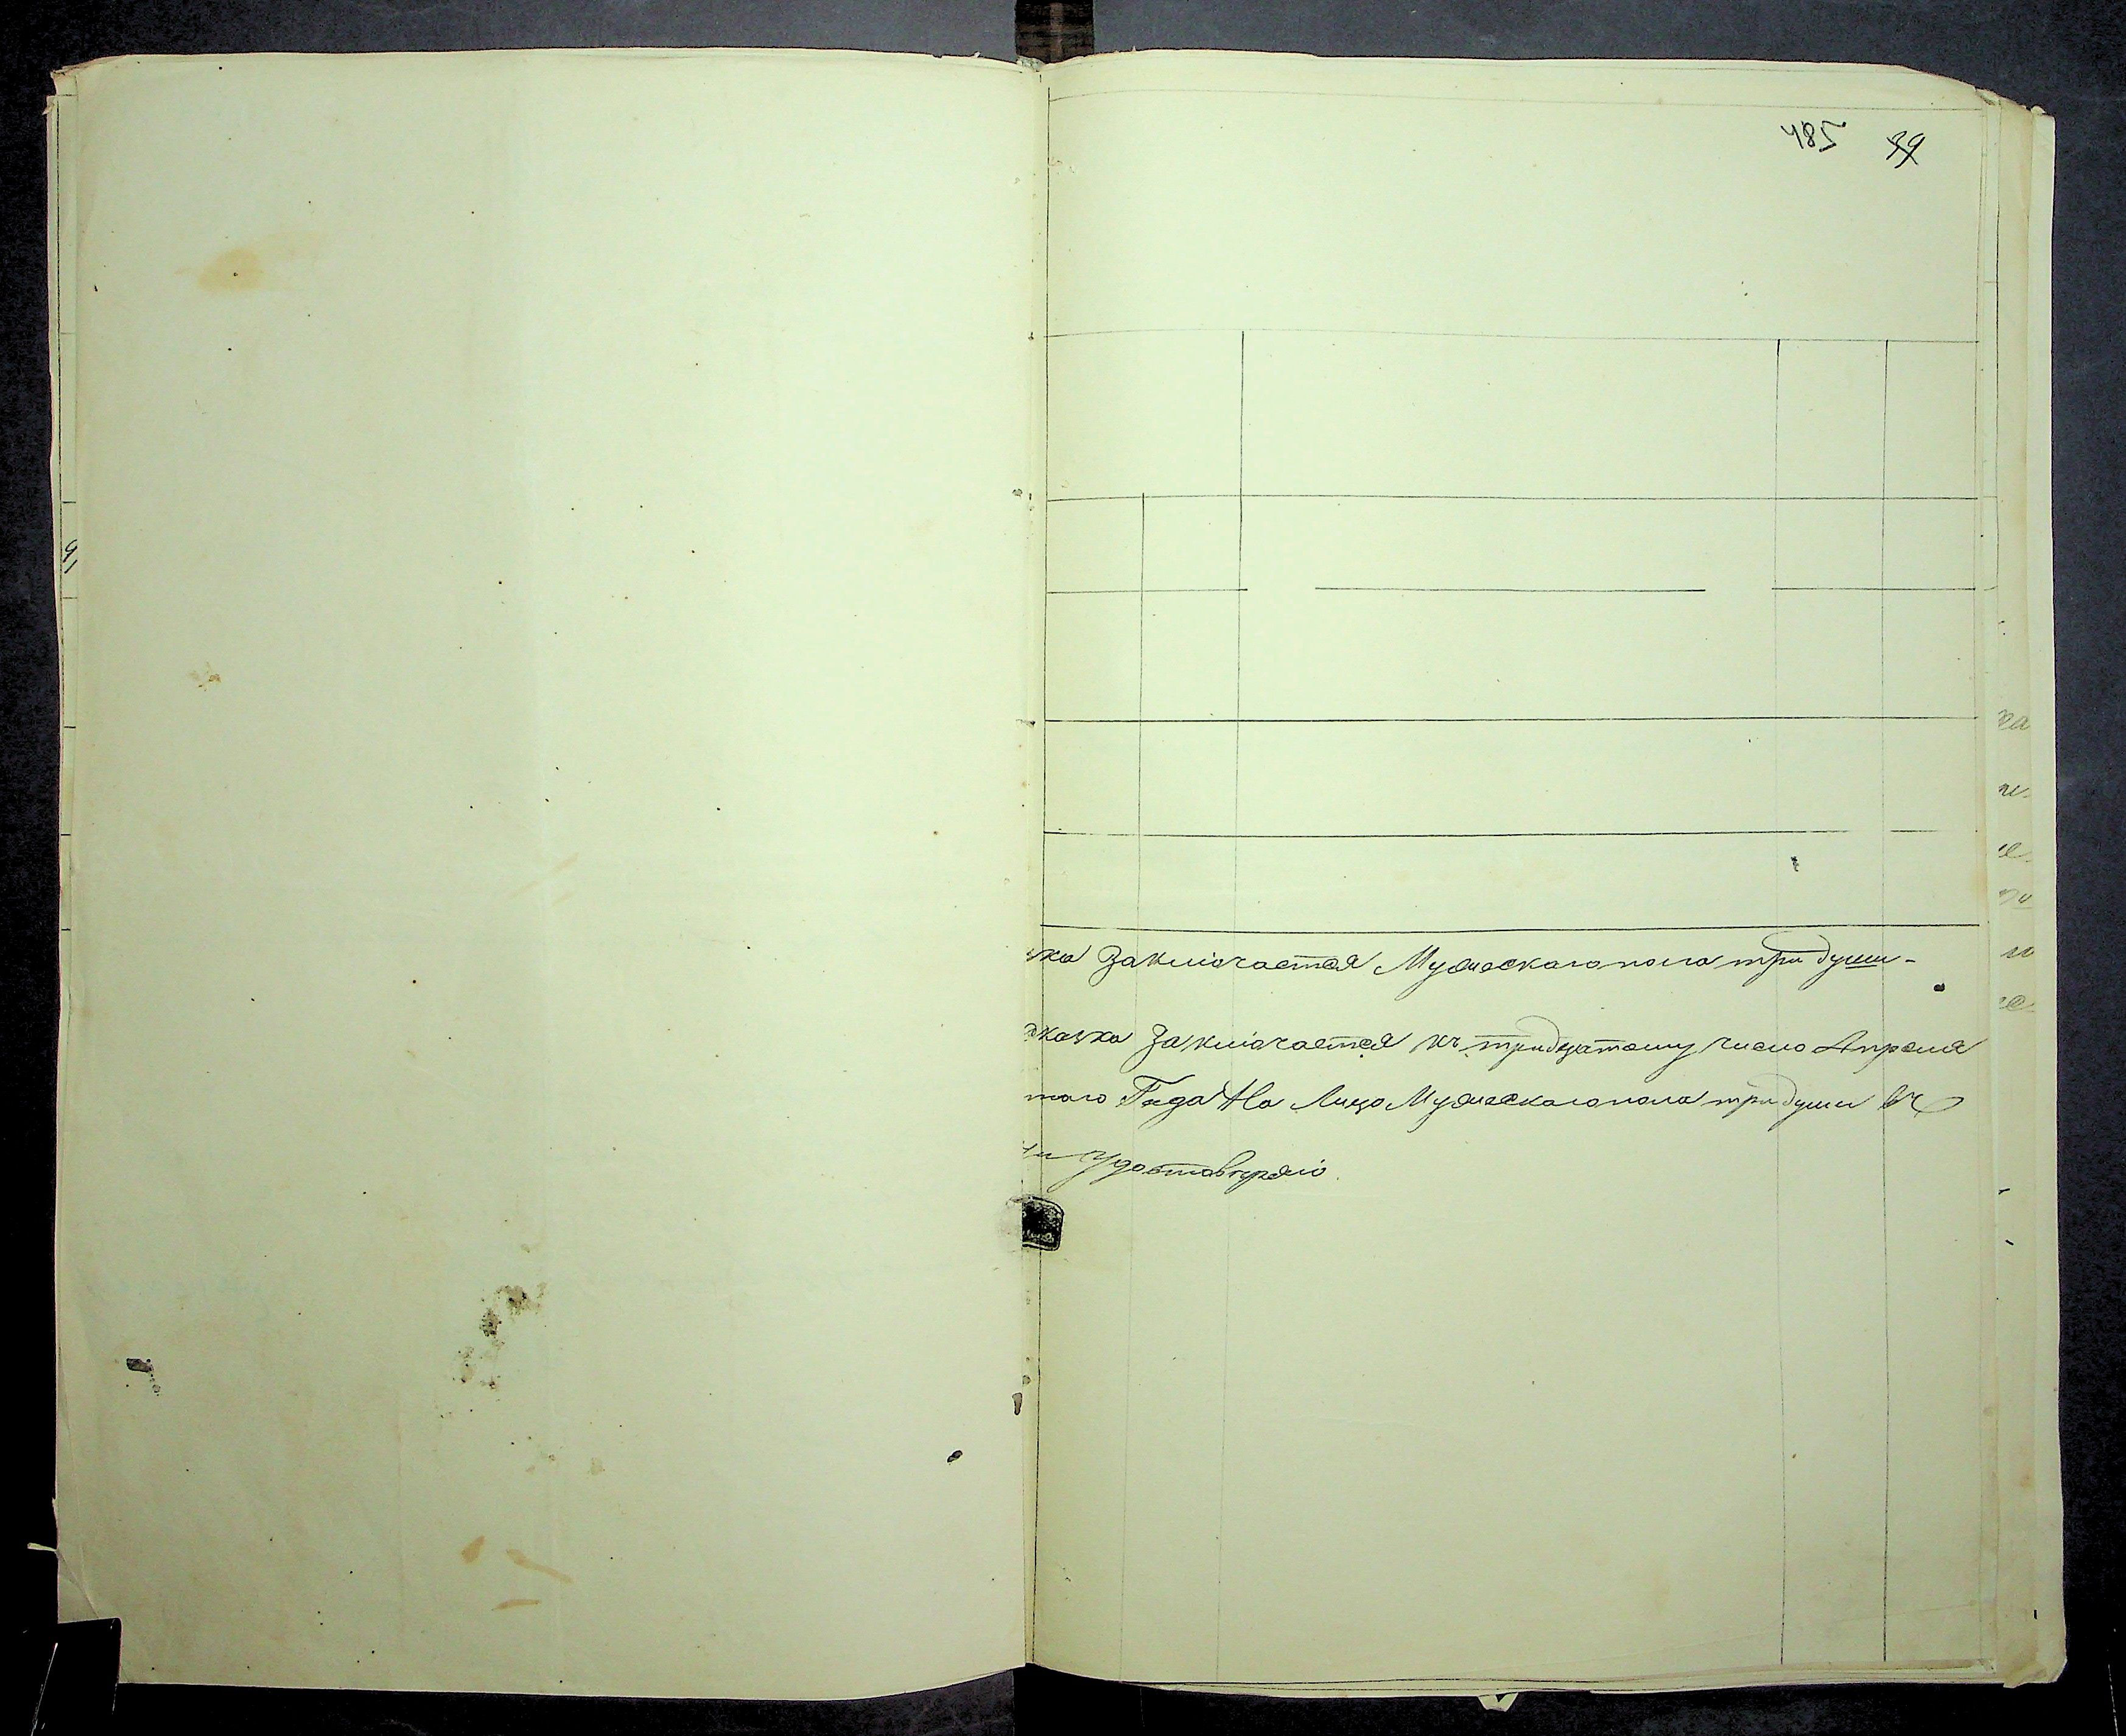 485 39
зка Заключается Мужескаго пола три души -
сказка Заключается къ тридцатому число Апреля
того Года На Лицо Мужескаго пола три души въ
Удостоверяю.